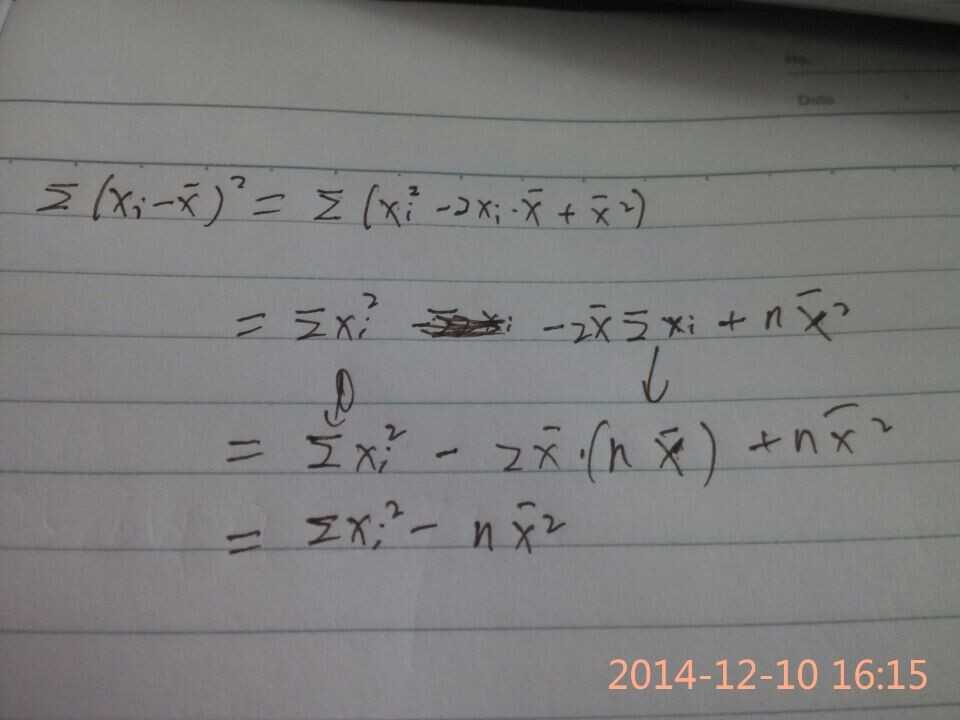 No.
Date
Σ(xᵢ-x̄)² = Σ(xᵢ²-2xᵢ·x̄+x̄²)
= Σxᵢ² -2x̄Σxᵢ+nx̄²
= Σxᵢ² - 2x̄·(nx̄)+nx̄²
= Σxᵢ² - nx̄²
2014-12-10 16:15